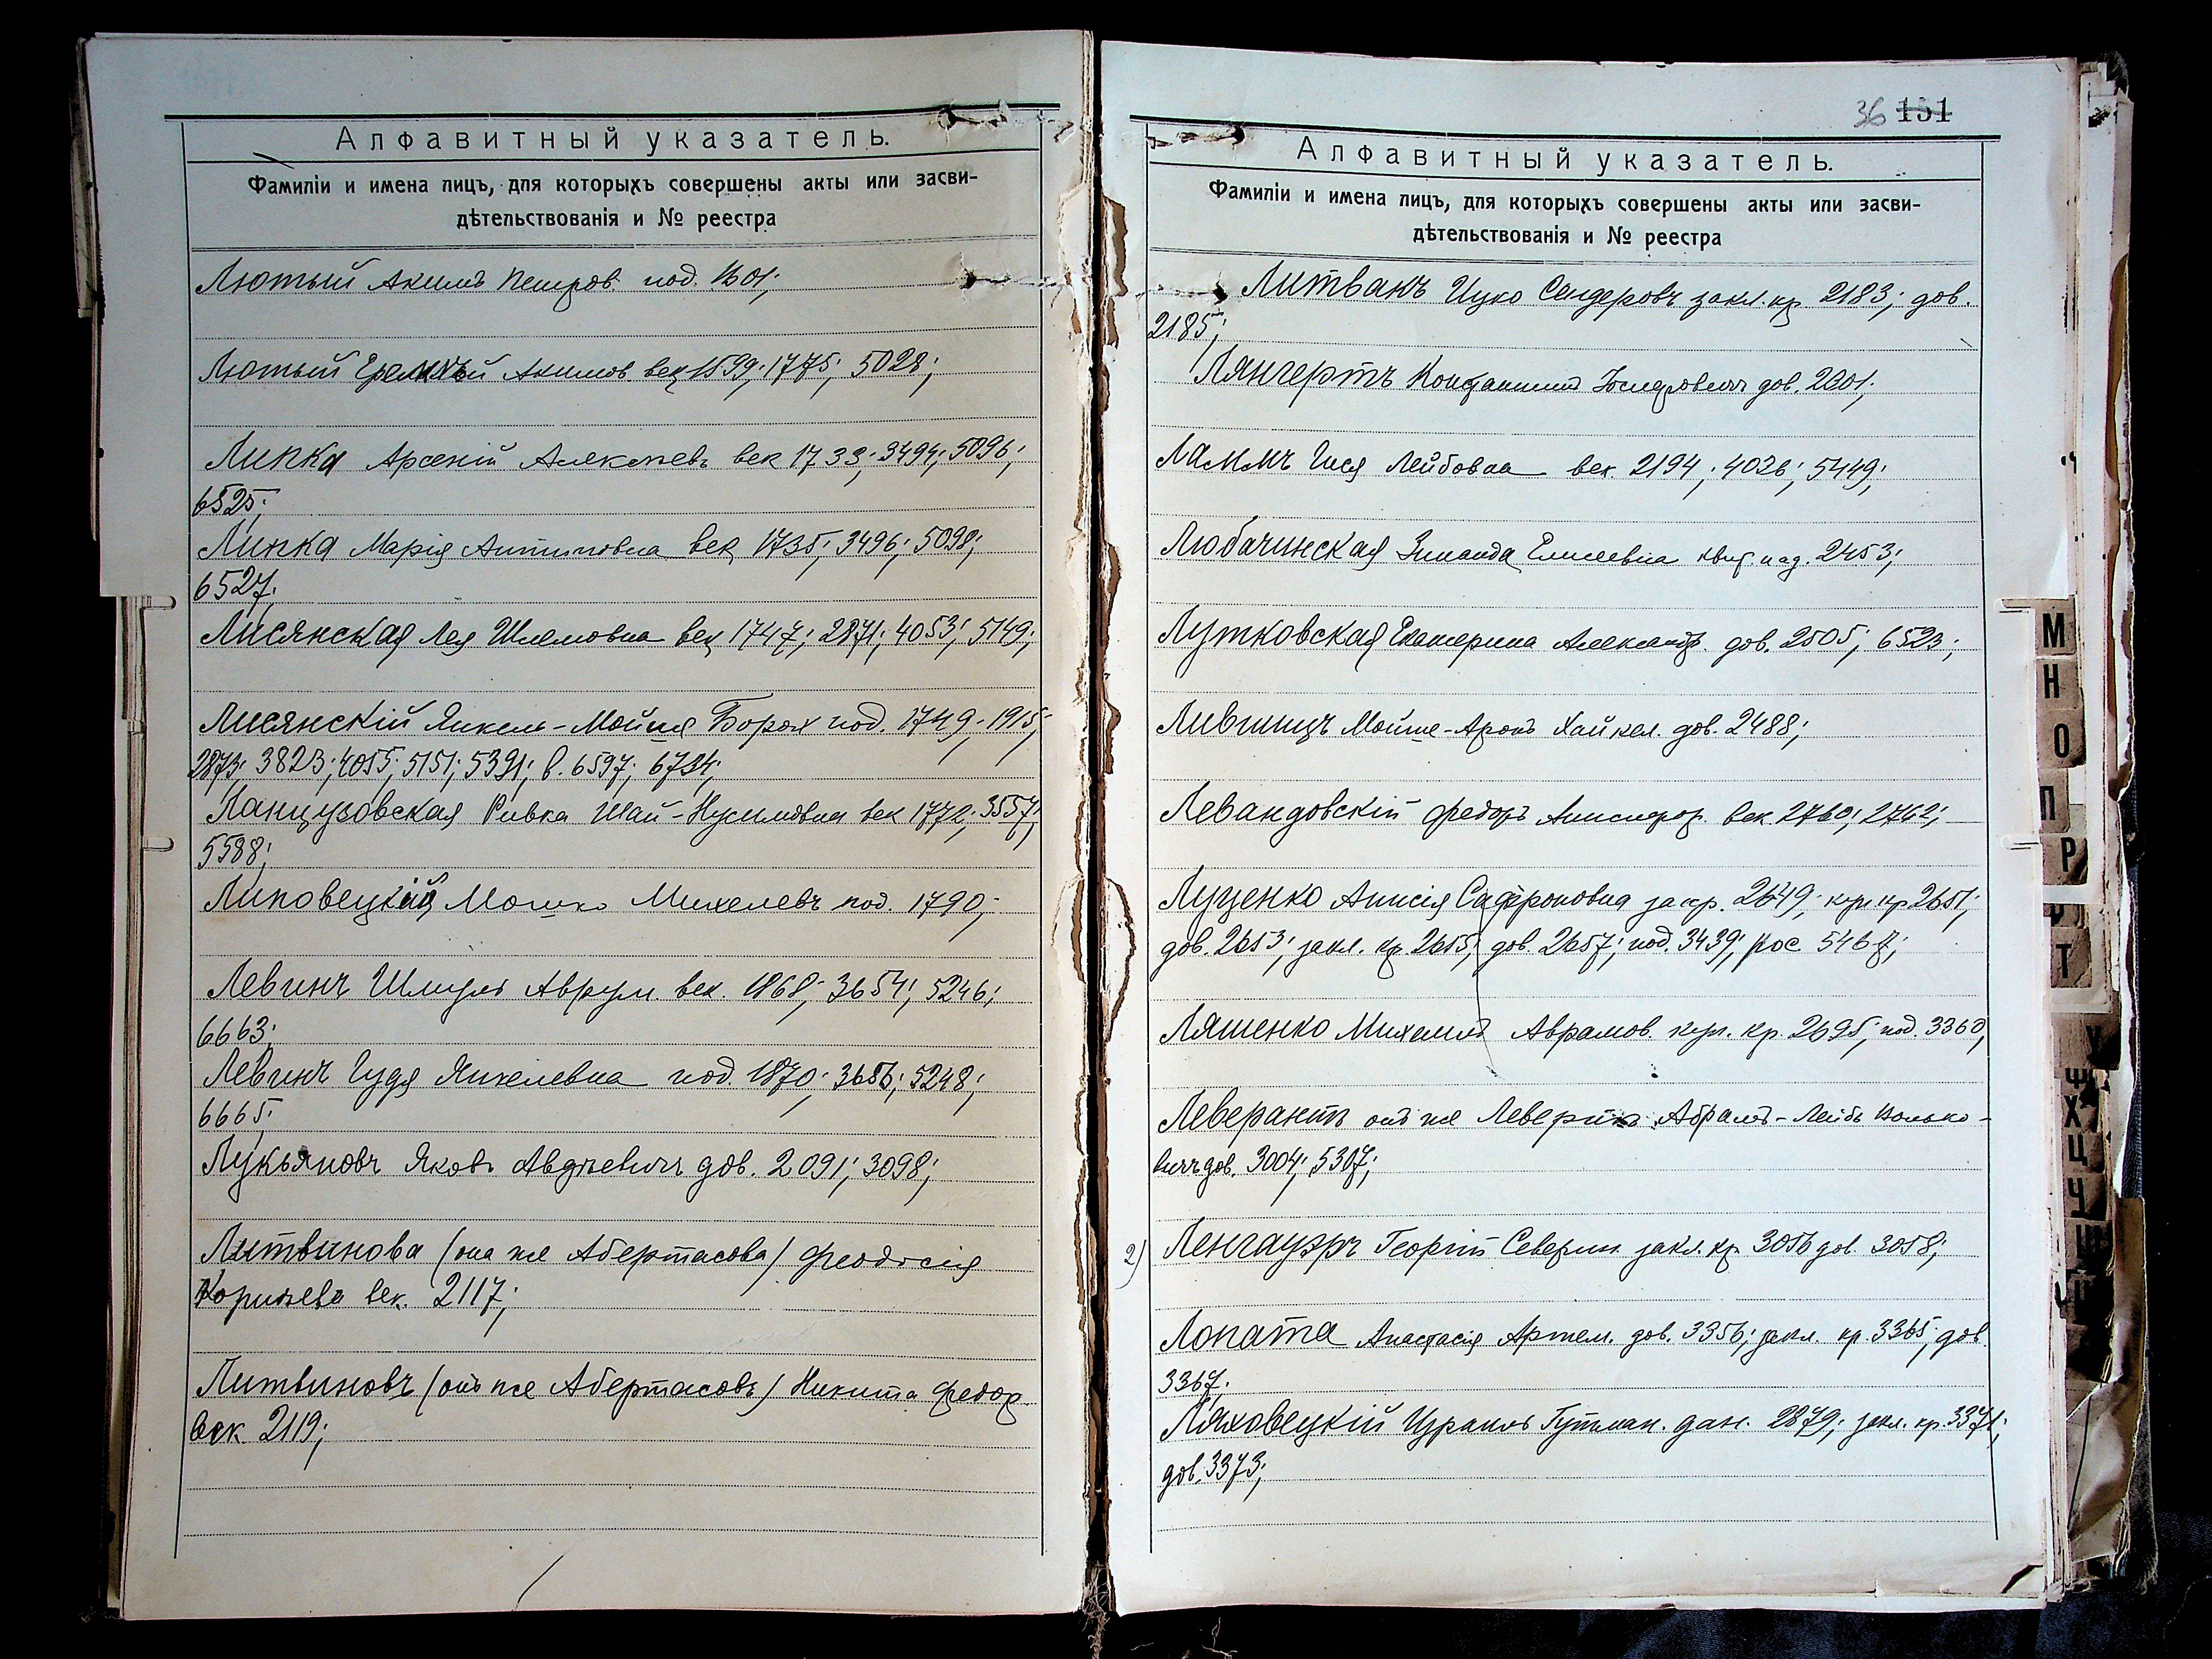 Алфавитный указатель.
Фамиліи и имена лицъ, для которыхъ совершены акты или засви-
дѣтельствованія и № реестра
Лютый Акимъ Петров. под. 1601;
Лютый Акимов век 1599; 1775; 5028;
Липка Арсеній Алексѣевъ век 1733; 3494; 5096;
6525;
Липка Марія Антиповна век 1735; 3496; 5098;
6527;
Лисянская Лея Шлемовна век 1747; 2871; 4053; 5149;
Лисянскій Янкель-Мойше Борох под. 1749; 1915;
2873; 3823; 4055; 5151; 5391; в. 6597; 6734;
Ланцузовская Ривка Шай-Нусимовна век 1772; 3557;
5588;
Липовецкій Мошко Михелевъ под. 1790;
Левинъ Шмуль Аврум. век. 1868; 3654; 5246;
6663;
Левинъ Гудя Янкелевна под. 1870; 3656; 5248;
6665;
Лукьяновъ Яковъ Авдѣевичъ дов. 2091; 3098;
Литвинова (она же Абертасова) Феодосія
Корнѣева век. 2117;
Литвиновъ (онъ же Абертасовъ) Никита Федор.
век. 2119;
36 151
Алфавитный указатель.
Фамиліи и имена лицъ, для которыхъ совершены акты или засви-
дѣтельствованія и № реестра
Литванъ Ицко Сендеровъ закл. кр. 2183; дов.
2185;
Лянгертъ Константинъ дов. 2001;
Ламмъ Гися Лейбовна век. 2194; 4026; 5449;
Любачинская Зинаида Елисеевна 2453;
Лутковская Екатерина Александр. дов. 2505; 6523;
Лившицъ Мойше-Аронъ Хайкел. дов. 2488;
Левандовскій Федоръ век. 2760; 2762;
Луценко Анисія Сафроновна 2649; куп. кр 2651;
дов. 2653; закл. кр. 2655; дов. 2657; под. 3439; рос 5467;
Ляшенко Михаилъ Аврамов. куп. кр. 2695; под. 3360;
Леверантъ онъ же Абрамъ-Лейбъ Волько-
вичъ дов. 3004; 5307;
2) Ленгауэръ Георгій Северин. закл. кр 3056 дов. 3058;
Лопата Анастасія Артем. дов. 3356; закл. кр. 3365; дов.
3367;
Ляховецкій Израиль Гутман. дан. 2879; закл. кр. 3371;
дов. 3373;
М
Н
О
П
Р
Т
Х
Ц
Ч